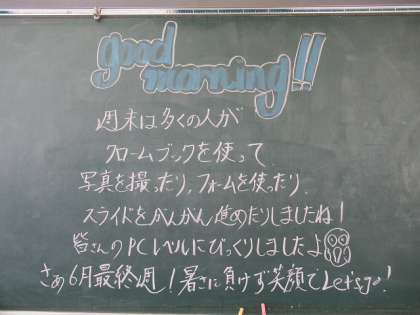 good
morning!!
週末は多くの人が
クロームブックを使って
写真を撮ったり、フォームを使ったり、
スライドをガンガン進めたりしましたね！
皆さんのPCレベルにびっくりしましたよ
さぁ6月最終週！暑さに負けず笑顔でLet's go!